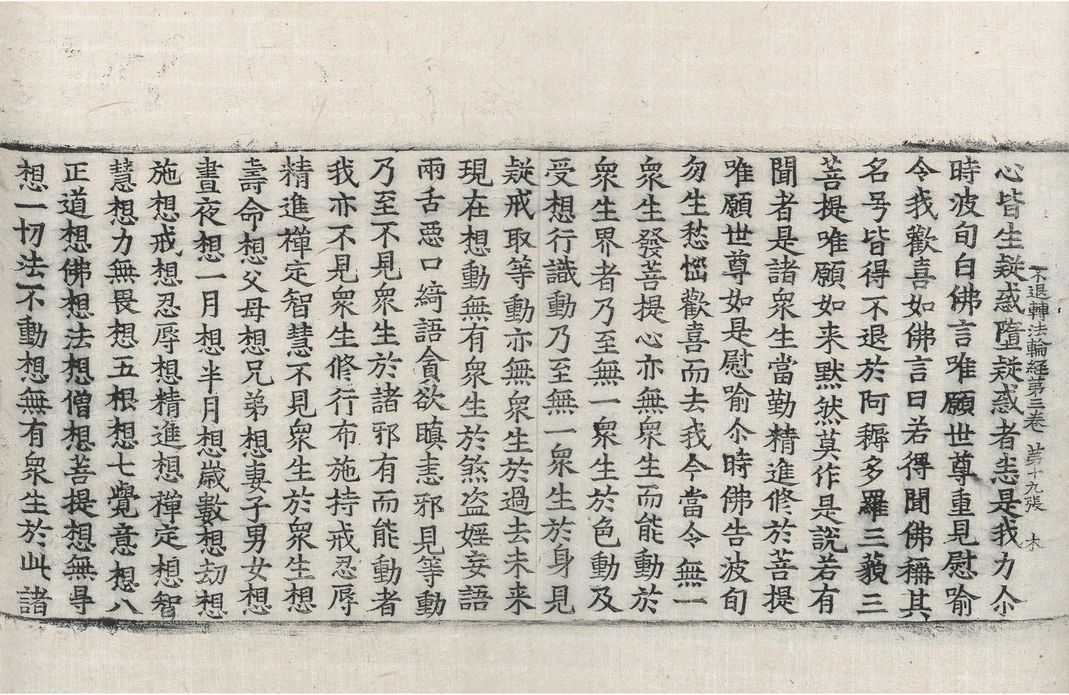 心皆生疑惑墮疑惑者恚是我力尒
不退轉法輪經苐三卷 苐十九張 木
時波旬白佛言唯願世尊重見慰喻
令我歡喜如佛言曰若得聞佛稱其
名号皆得不退於阿耨多羅三藐三
菩提唯願如来默然莫作是說若有
聞者是諸衆生當勤精進修於菩提
唯願世尊如是慰喻尒時佛告波旬
勿生愁惱歡喜而去我今當令無一
衆生發菩提心亦無衆生而能動於
衆生界者乃至無一衆生於色動及
受想行識動乃至無一衆生於身見
疑戒取等動亦無衆生於過去未来
現在想動無有衆生於煞盗婬妄語
兩舌惡口綺語貪欲瞋恚邪見等動
乃至不見衆生於諸邪有而能動者
我亦不見衆生修行布施持戒忍辱
精進禪定智慧不見衆生於衆生想
壽命想父母想兄弟想妻子男女想
晝夜想一月想半月想歲數想劫想
施想戒想忍辱想精進想禪定想智
慧想力無畏想五根想七覺意想八
正道想佛想法想僧想菩提想無㝵
想一切法不動想無有衆生於此諸